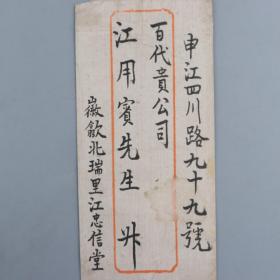 申江四川路九十九號
百代貴公司
江用賓先生 升
徽歙北瑞里江忠信堂